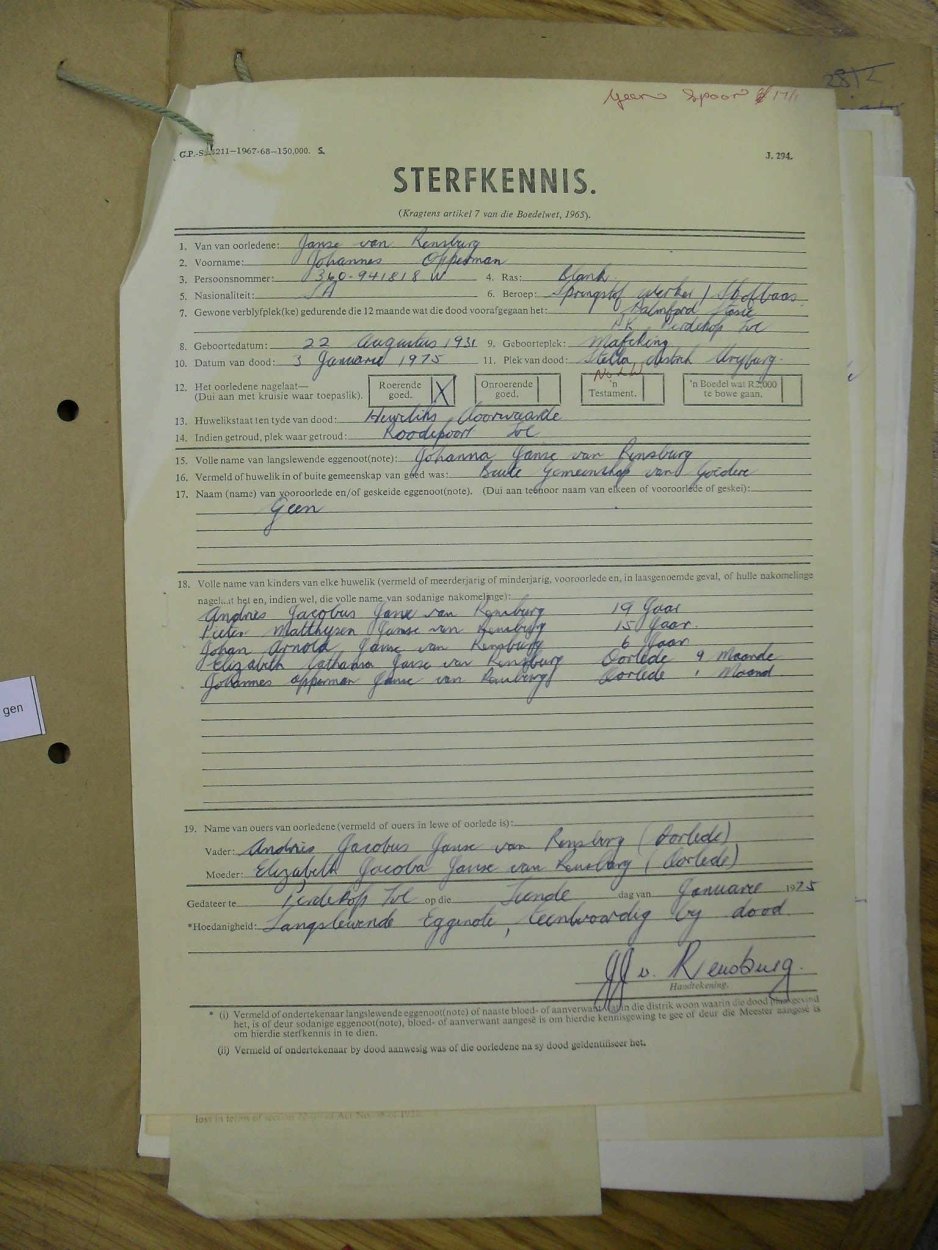 Geen Spoor 17/1
G.P.-S. 4211—1967-68—150,000. S. J. 294.
STERFKENNIS.
(Kragtens artikel 7 van die Boedelwet, 1965).
1. Van van oorledene: Janse van Rensburg
2. Voorname: Johannes Opperman
3. Persoonsnommer: 360-941818 W 4. Ras: Blank.
5. Nasionaliteit: SA 6. Beroep: Springstof werker / Skofbaas
7. Gewone verblyfplek(ke) gedurende die 12 maande wat die dood voorafgegaan het: Palmford Stasie
PK Perdekop Tvl
8. Geboortedatum: 22 Augustus 1931 9. Geboorteplek: Mafeking
10. Datum van dood: 3 Januarie 1975 11. Plek van dood: Stella, distrik Vryburg.
12. Het oorledene nagelaat—
(Dui aan met kruisie waar toepaslik).
Roerende goed. X
Onroerende goed.
'n Testament.
'n Boedel wat R2,000 te bowe gaan.
13. Huwelikstaat ten tyde van dood: Huweliks Voorwaarde
14. Indien getroud, plek waar getroud: Roodepoort Tvl
15. Volle name van langslewende eggenoot(note): Johanna Janse van Rensburg
16. Vermeld of huwelik in of buite gemeenskap van goed was: Buite Gemeenskap van Goedere
17. Naam (name) van vooroorlede en/of geskeide eggenoot(note). (Dui aan teenoor naam van elkeen of vooroorlede of geskei):
Geen
18. Volle name van kinders van elke huwelik (vermeld of meerderjarig of minderjarig, vooroorlede en, in laasgenoemde geval, of hulle nakomelinge
nagelaat het en, indien wel, die volle name van sodanige nakomelinge):
Andries Jacobus Janse van Rensburg 19 Jaar
Pieter Matthysen Janse van Rensburg 15 Jaar.
Johan Arnold Janse van Rensburg 6 Jaar
Elizabeth Catharina Janse van Rensburg Oorlede 9 Maande
Johannes Opperman Janse van Rensburg Oorlede 1 Maand
19. Name van ouers van oorledene (vermeld of ouers in lewe of oorlede is):
Vader: Andries Jacobus Janse van Rensburg (Oorlede)
Moeder: Elizabeth Jacoba Janse van Rensburg (Oorlede)
Gedateer te Perdekop Tvl op die Tiende dag van Januarie 1975
*Hoedanigheid: Langslewende Eggenote, Teenwoordig by dood.
JJ v. Rensburg.
Handtekening.
* (i) Vermeld of ondertekenaar langslewende eggenoot(note) of naaste bloed- of aanverwant is in die distrik woon waarin die dood plaasgevind
het, is of deur sodanige eggenoot(note), bloed- of aanverwant aangesê is om hierdie kennisgewing te gee of deur die Meester aangesê is
om hierdie sterfkennis in te dien.
(ii) Vermeld of ondertekenaar by dood aanwesig was of die oorledene na sy dood geïdentifiseer het.
loss in terms of section
gen